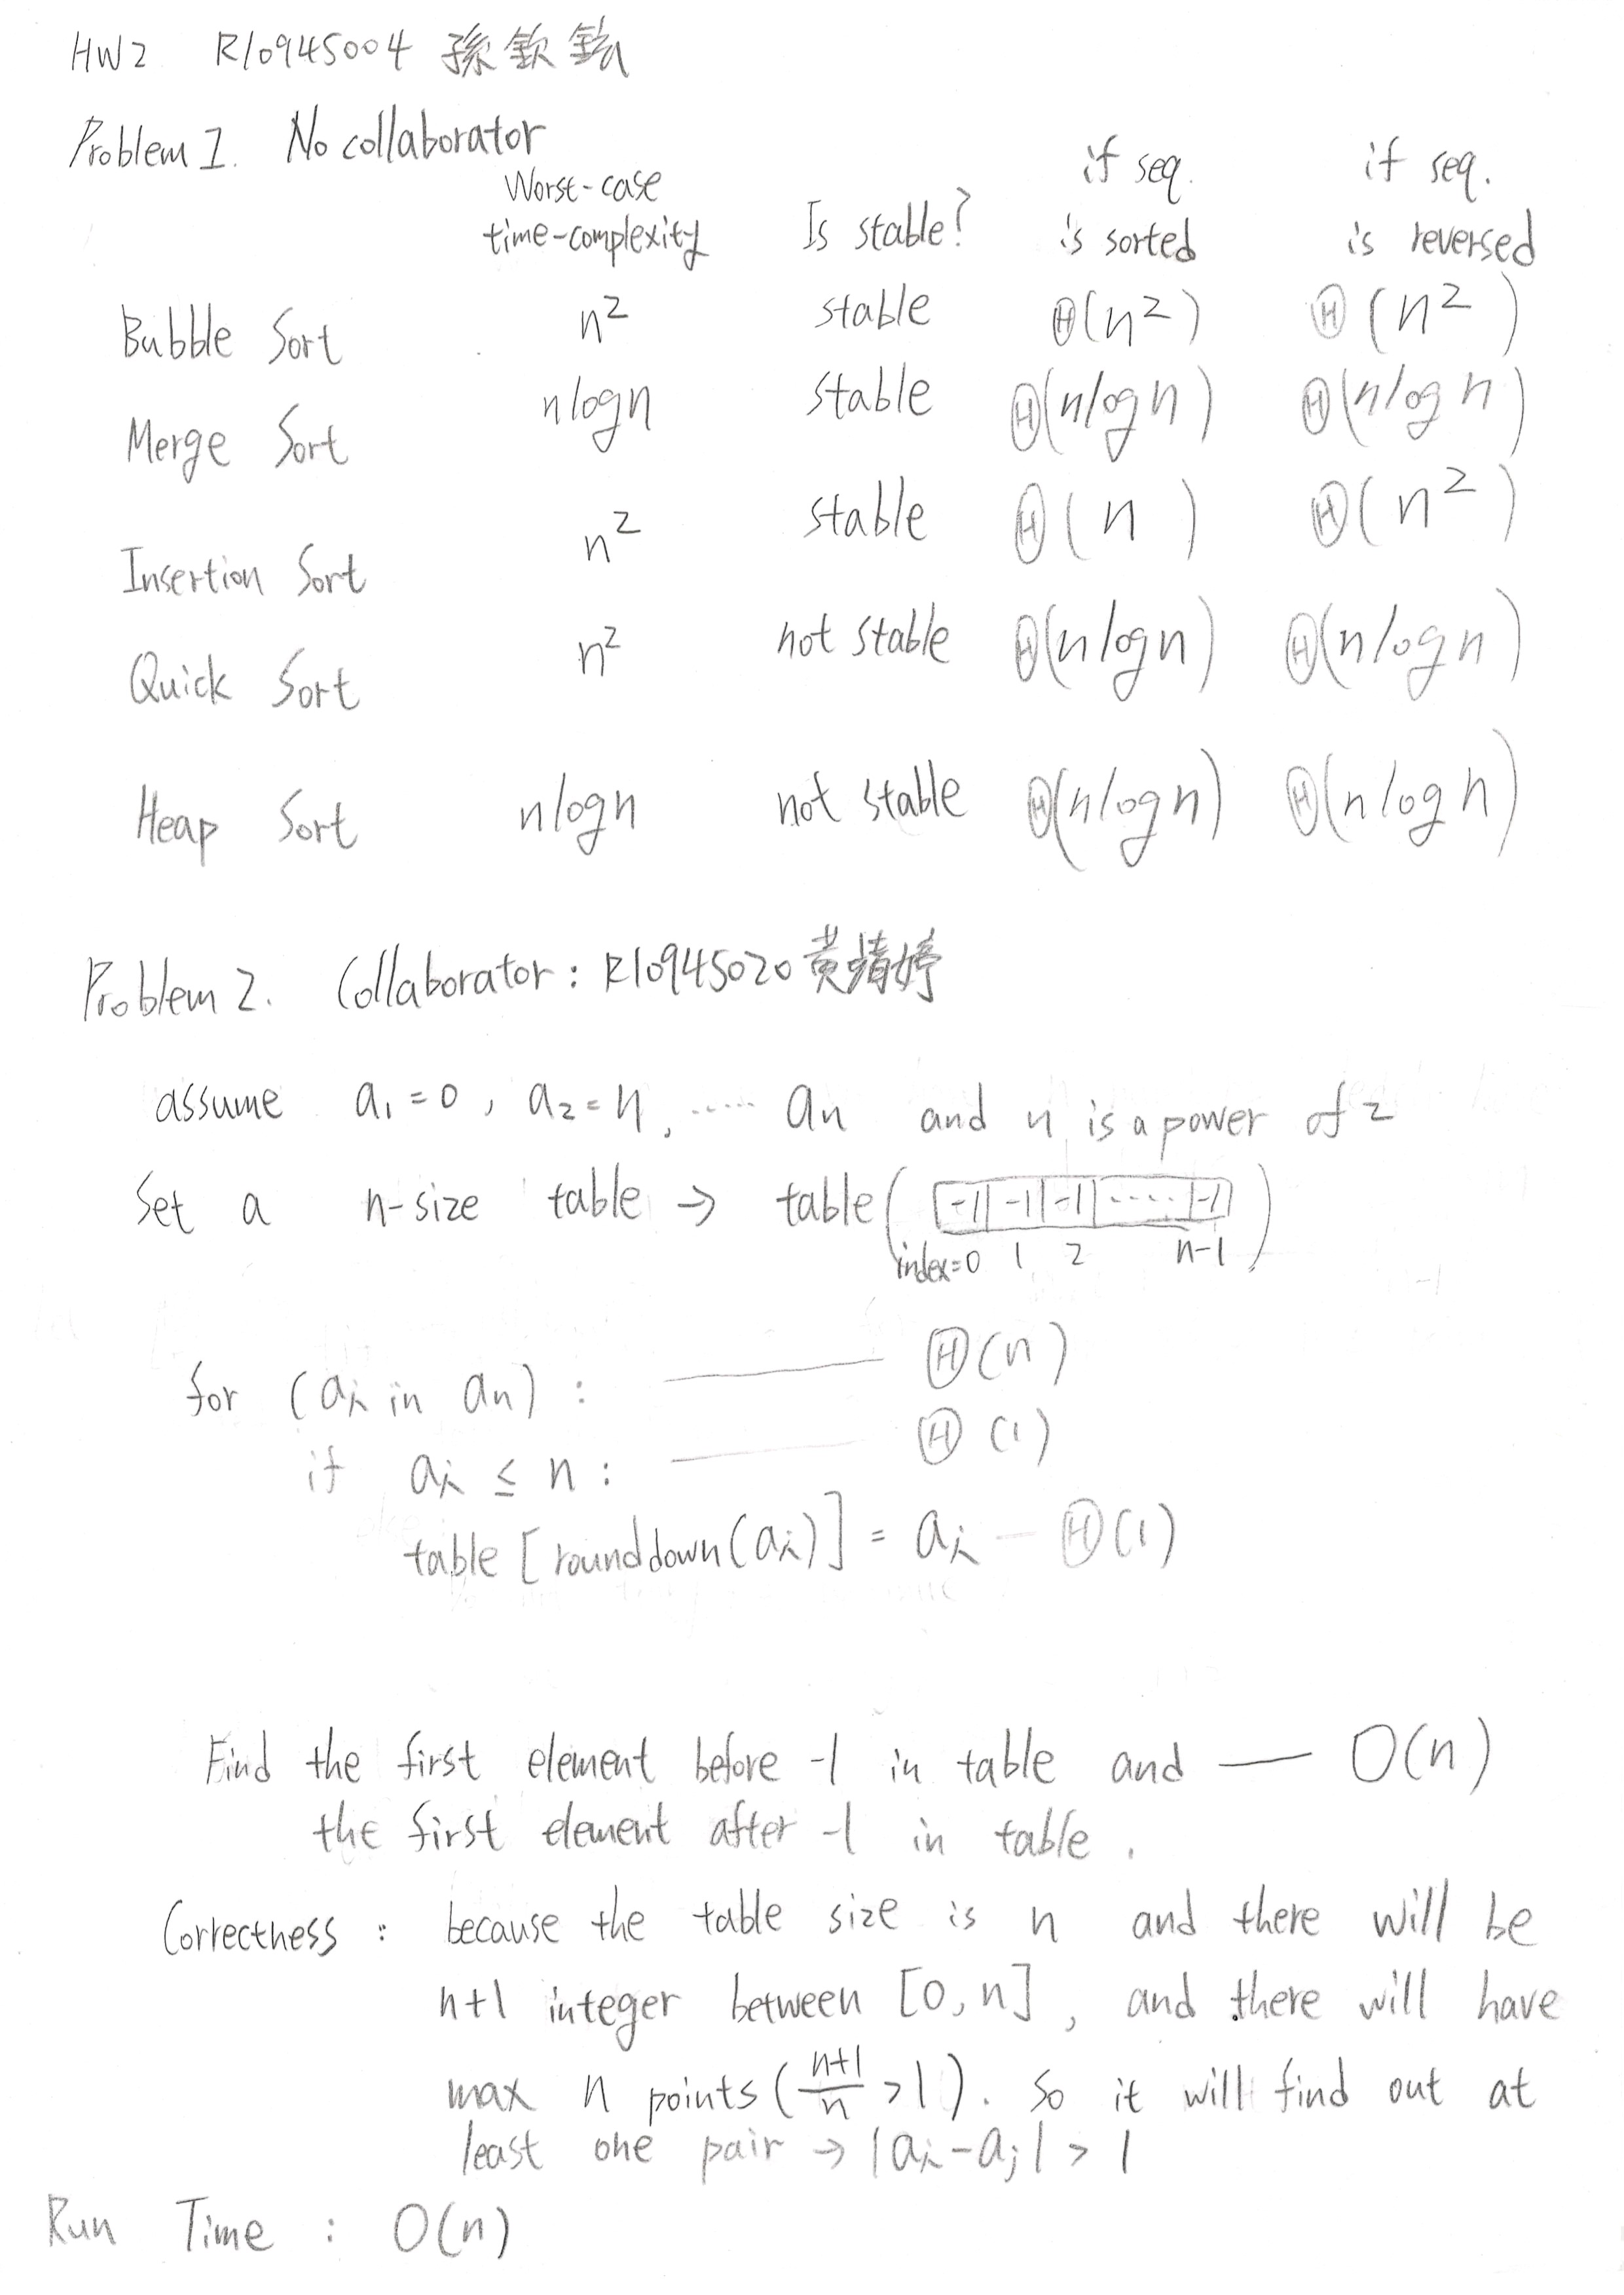 HW2 R10945004 孫欽鉉
Problem 1. No collaborator
Worst-case time-complexity Is stable? if seq. is sorted if seq. is reversed
Bubble Sort n² stable Θ(n²) Θ(n²)
Merge Sort nlogn stable Θ(nlogn) Θ(nlogn)
Insertion Sort n² stable Θ(n) Θ(n²)
Quick Sort n² not stable Θ(nlogn) Θ(nlogn)
Heap Sort nlogn not stable Θ(nlogn) Θ(nlogn)
Problem 2. Collaborator: R10945020 黄婷
assume a₁=0, a₂=n, ..... an and n is a power of 2
Set a n-size table → table( -1 | -1 | -1 | ..... | -1 )
index=0 1 2 n-1
for (aᵢ in an) : —— Θ(n)
if aᵢ ≤ n : —— Θ(1)
table [rounddown(aᵢ)] = aᵢ — Θ(1)
Find the first element before -1 in table and — O(n)
the first element after -1 in table.
Correctness : because the table size is n and there will be
n+1 integer between [0,n], and there will have
max n points (n+1/n >1). So it will find out at
least one pair → |aᵢ-aⱼ| > 1
Run Time : O(n)